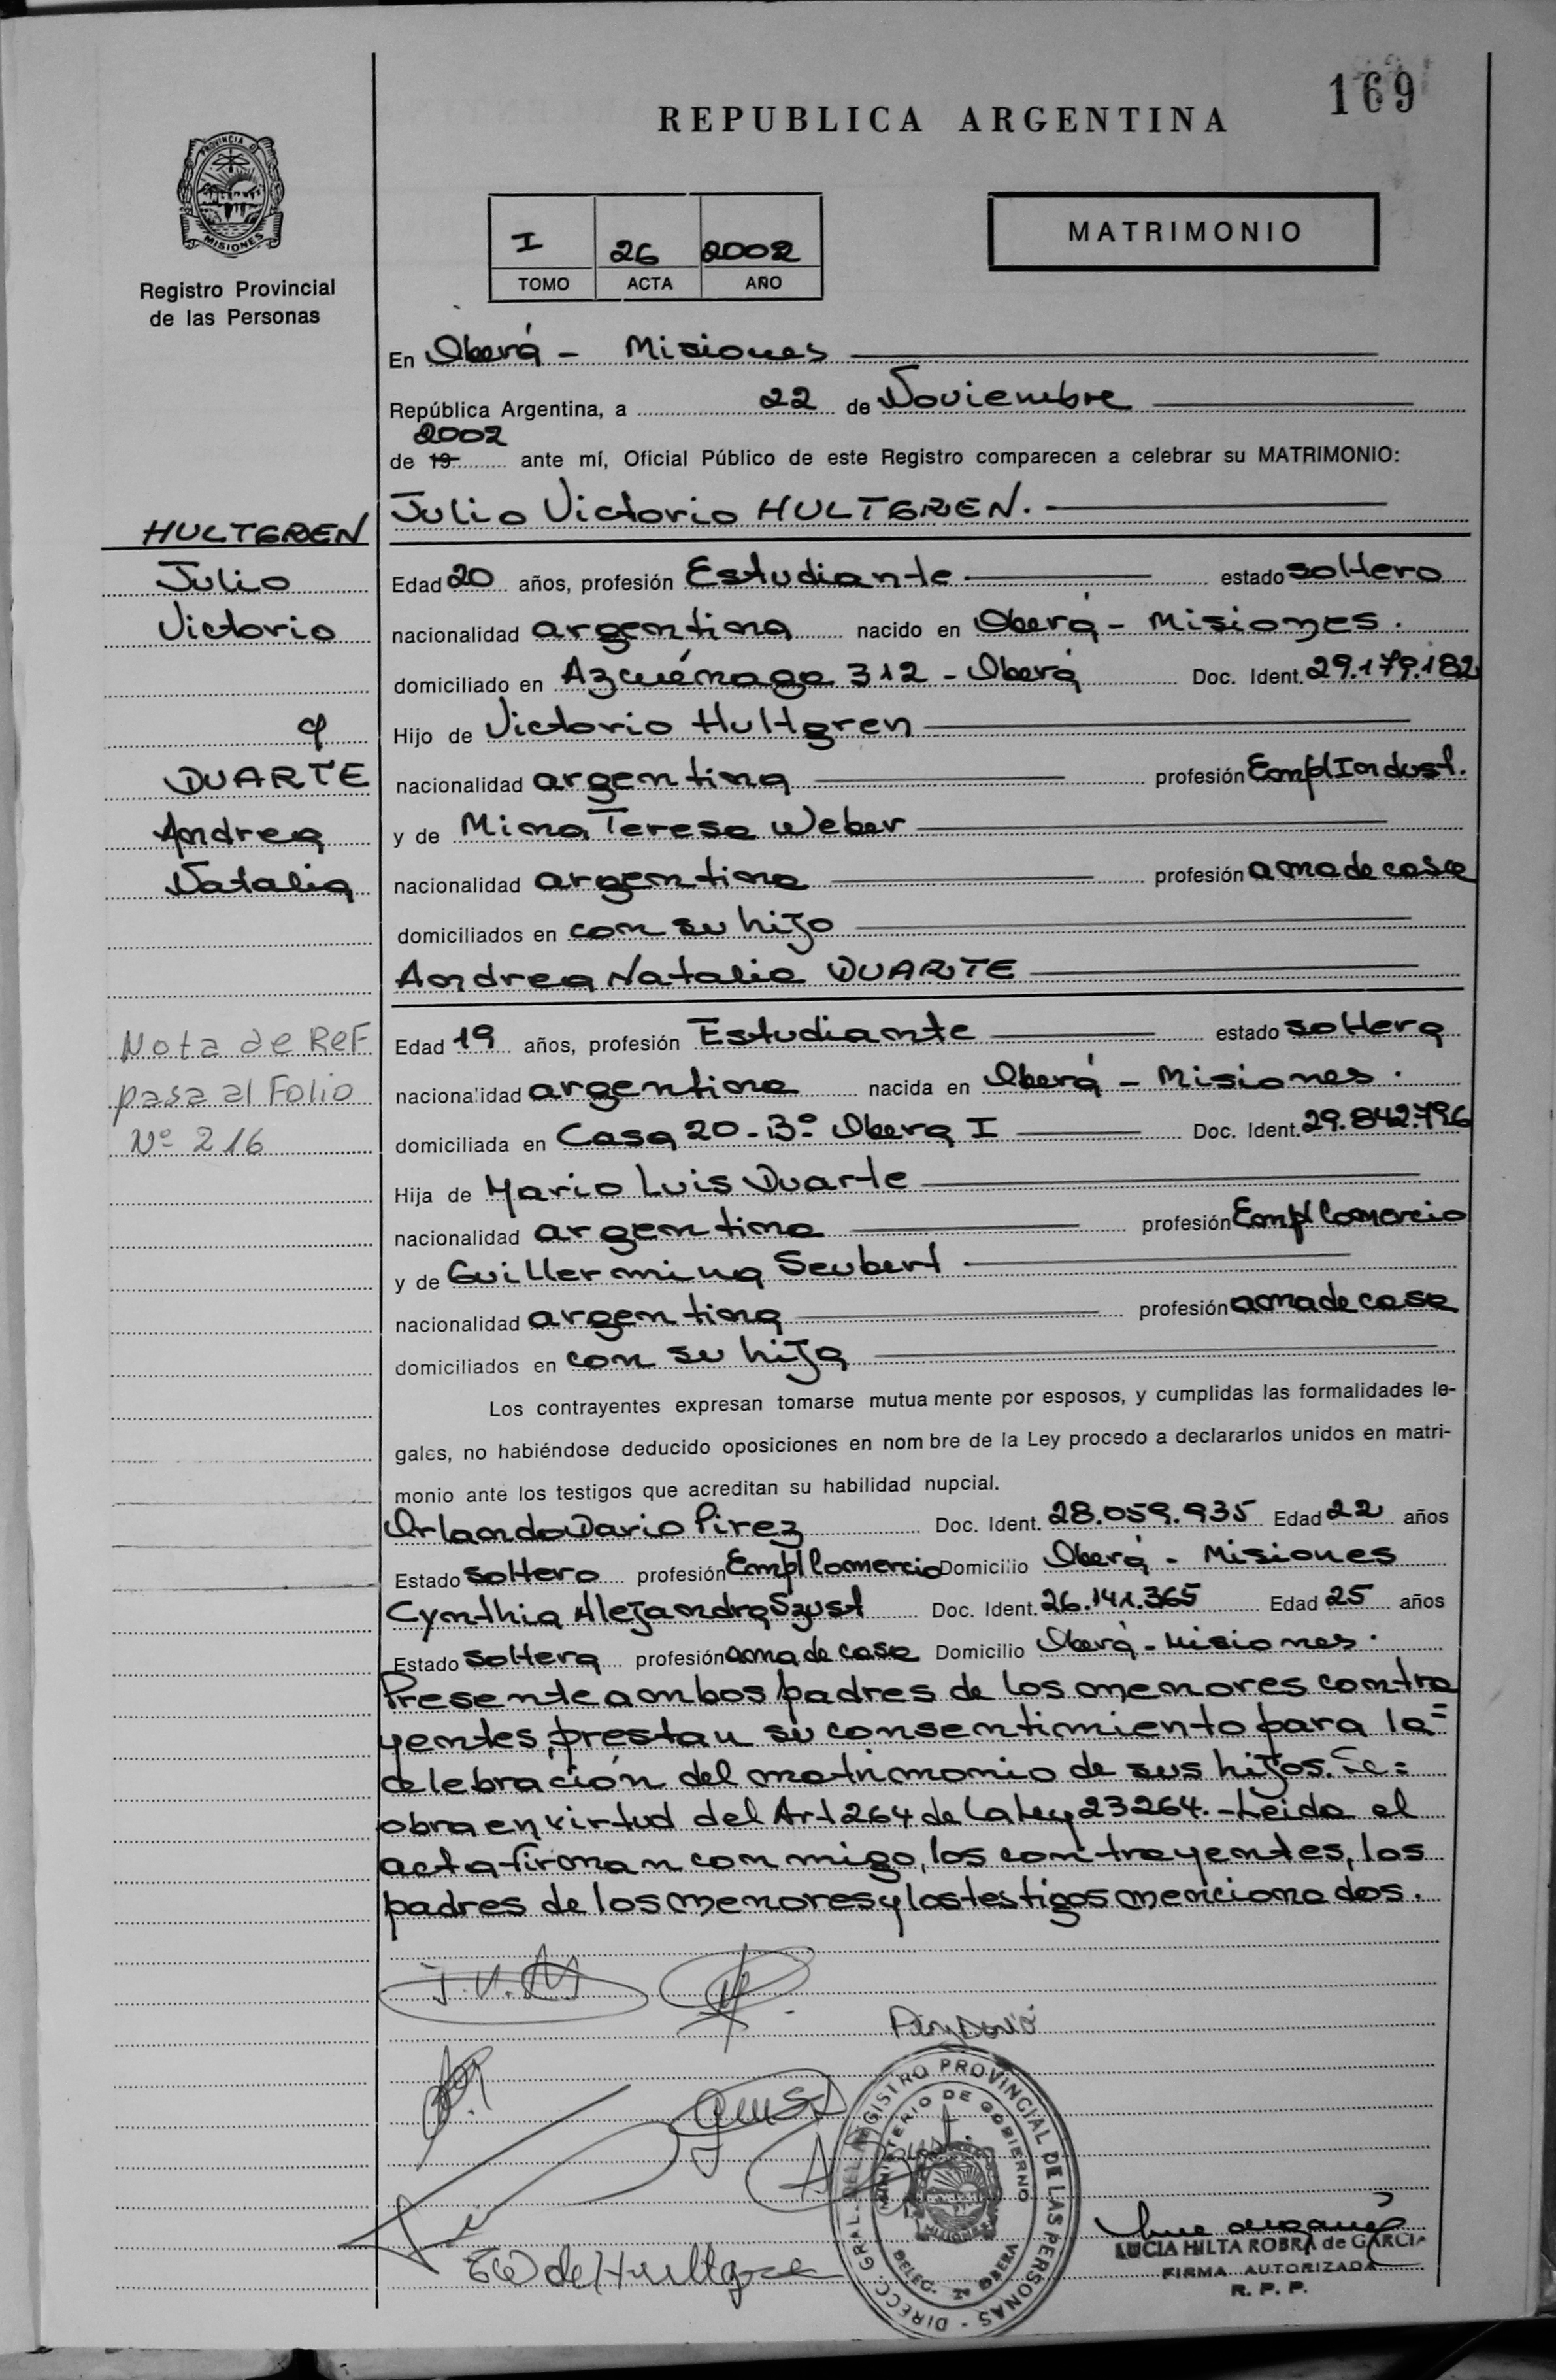 169
REPUBLICA ARGENTINA
PROVINCIA DE
MISIONES
Registro Provincial
de las Personas
I 26 2002
TOMO ACTA AÑO
MATRIMONIO
En Oberá - Misiones
República Argentina, a 22 de Noviembre
2002
de 19 ante mí, Oficial Público de este Registro comparecen a celebrar su MATRIMONIO:
Julio Victorio HULTGREN.
HULTGREN
Julio
Victorio
y
DUARTE
Andrea
Natalia
Edad 20 años, profesión Estudiante estado soltero
nacionalidad argentina nacido en Oberá - Misiones.
domiciliado en Azcuénaga 312 - Oberá Doc. Ident. 29.179.182
Hijo de Victorio Hultgren
nacionalidad argentina profesión Empl Indust.
y de Mirna Teresa Weber
nacionalidad argentina profesión ama de casa
domiciliados en con su hijo
Andrea Natalia DUARTE
Nota de Ref
pasa al Folio
Nº 216
Edad 19 años, profesión Estudiante estado soltera
nacionalidad argentina nacida en Oberá - Misiones.
domiciliada en Casa 20 - Bº Obera I Doc. Ident. 29.842.796
Hija de Mario Luis Duarte
nacionalidad argentina profesión Empl Comercio
y de Guillermina Seubert
nacionalidad argentina profesión ama de casa
domiciliados en con su hija
Los contrayentes expresan tomarse mutua mente por esposos, y cumplidas las formalidades le-
gales, no habiéndose deducido oposiciones en nom bre de la Ley procedo a declararlos unidos en matri-
monio ante los testigos que acreditan su habilidad nupcial.
Orlando Dario Pirez Doc. Ident. 28.059.935 Edad 22 años
Estado soltero profesión Empl Comercio Domicilio Oberá - Misiones
Cynthia Alejandra Szust Doc. Ident. 26.141.365 Edad 25 años
Estado soltera profesión ama de casa Domicilio Oberá - Misiones.
Presente ambos padres de los menores contra
yentes, prestan su consentimiento para la=
celebración del matrimonio de sus hijos. Se=
obra en virtud del Art 264 de la Ley 23264.- Leida el
acta firman conmigo, los contrayentes, los
padres de los menores y los testigos mencionados.
J.V.H
de Hultgren
DIRECC. GRAL. DEL REGISTRO PROVINCIAL DE LAS PERSONAS
MINISTERIO DE GOBIERNO
MISIONES
DELEG. 2ª OBERA
LUCIA HILTA ROBRA de GARCIA
FIRMA AUTORIZADA
R. P. P.